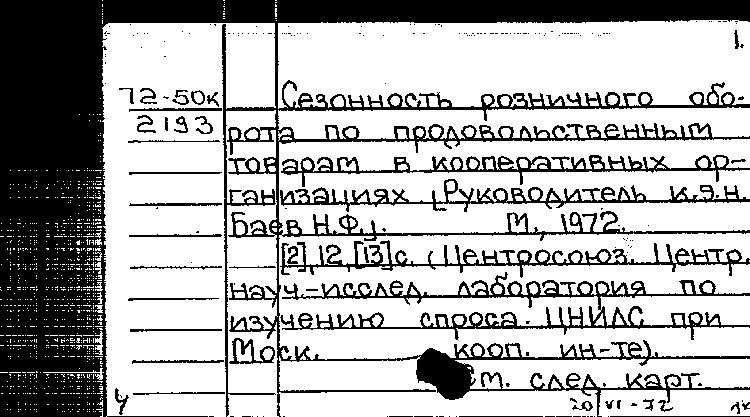 1.
72-50к Сезонность розничного обо-
2193 рота по продовольственным
товарам в кооперативных ор-
ганизациях [Руководитель к.э.н.
Баев Н.Ф.]. М., 1972.
[2], 12, [13] с. (Центросоюз. Центр.
науч.-исслед. лаборатория по
изучению спроса. ЦНИЛС при
Моск. кооп. ин-те).
См. след. карт.
20/VI-72